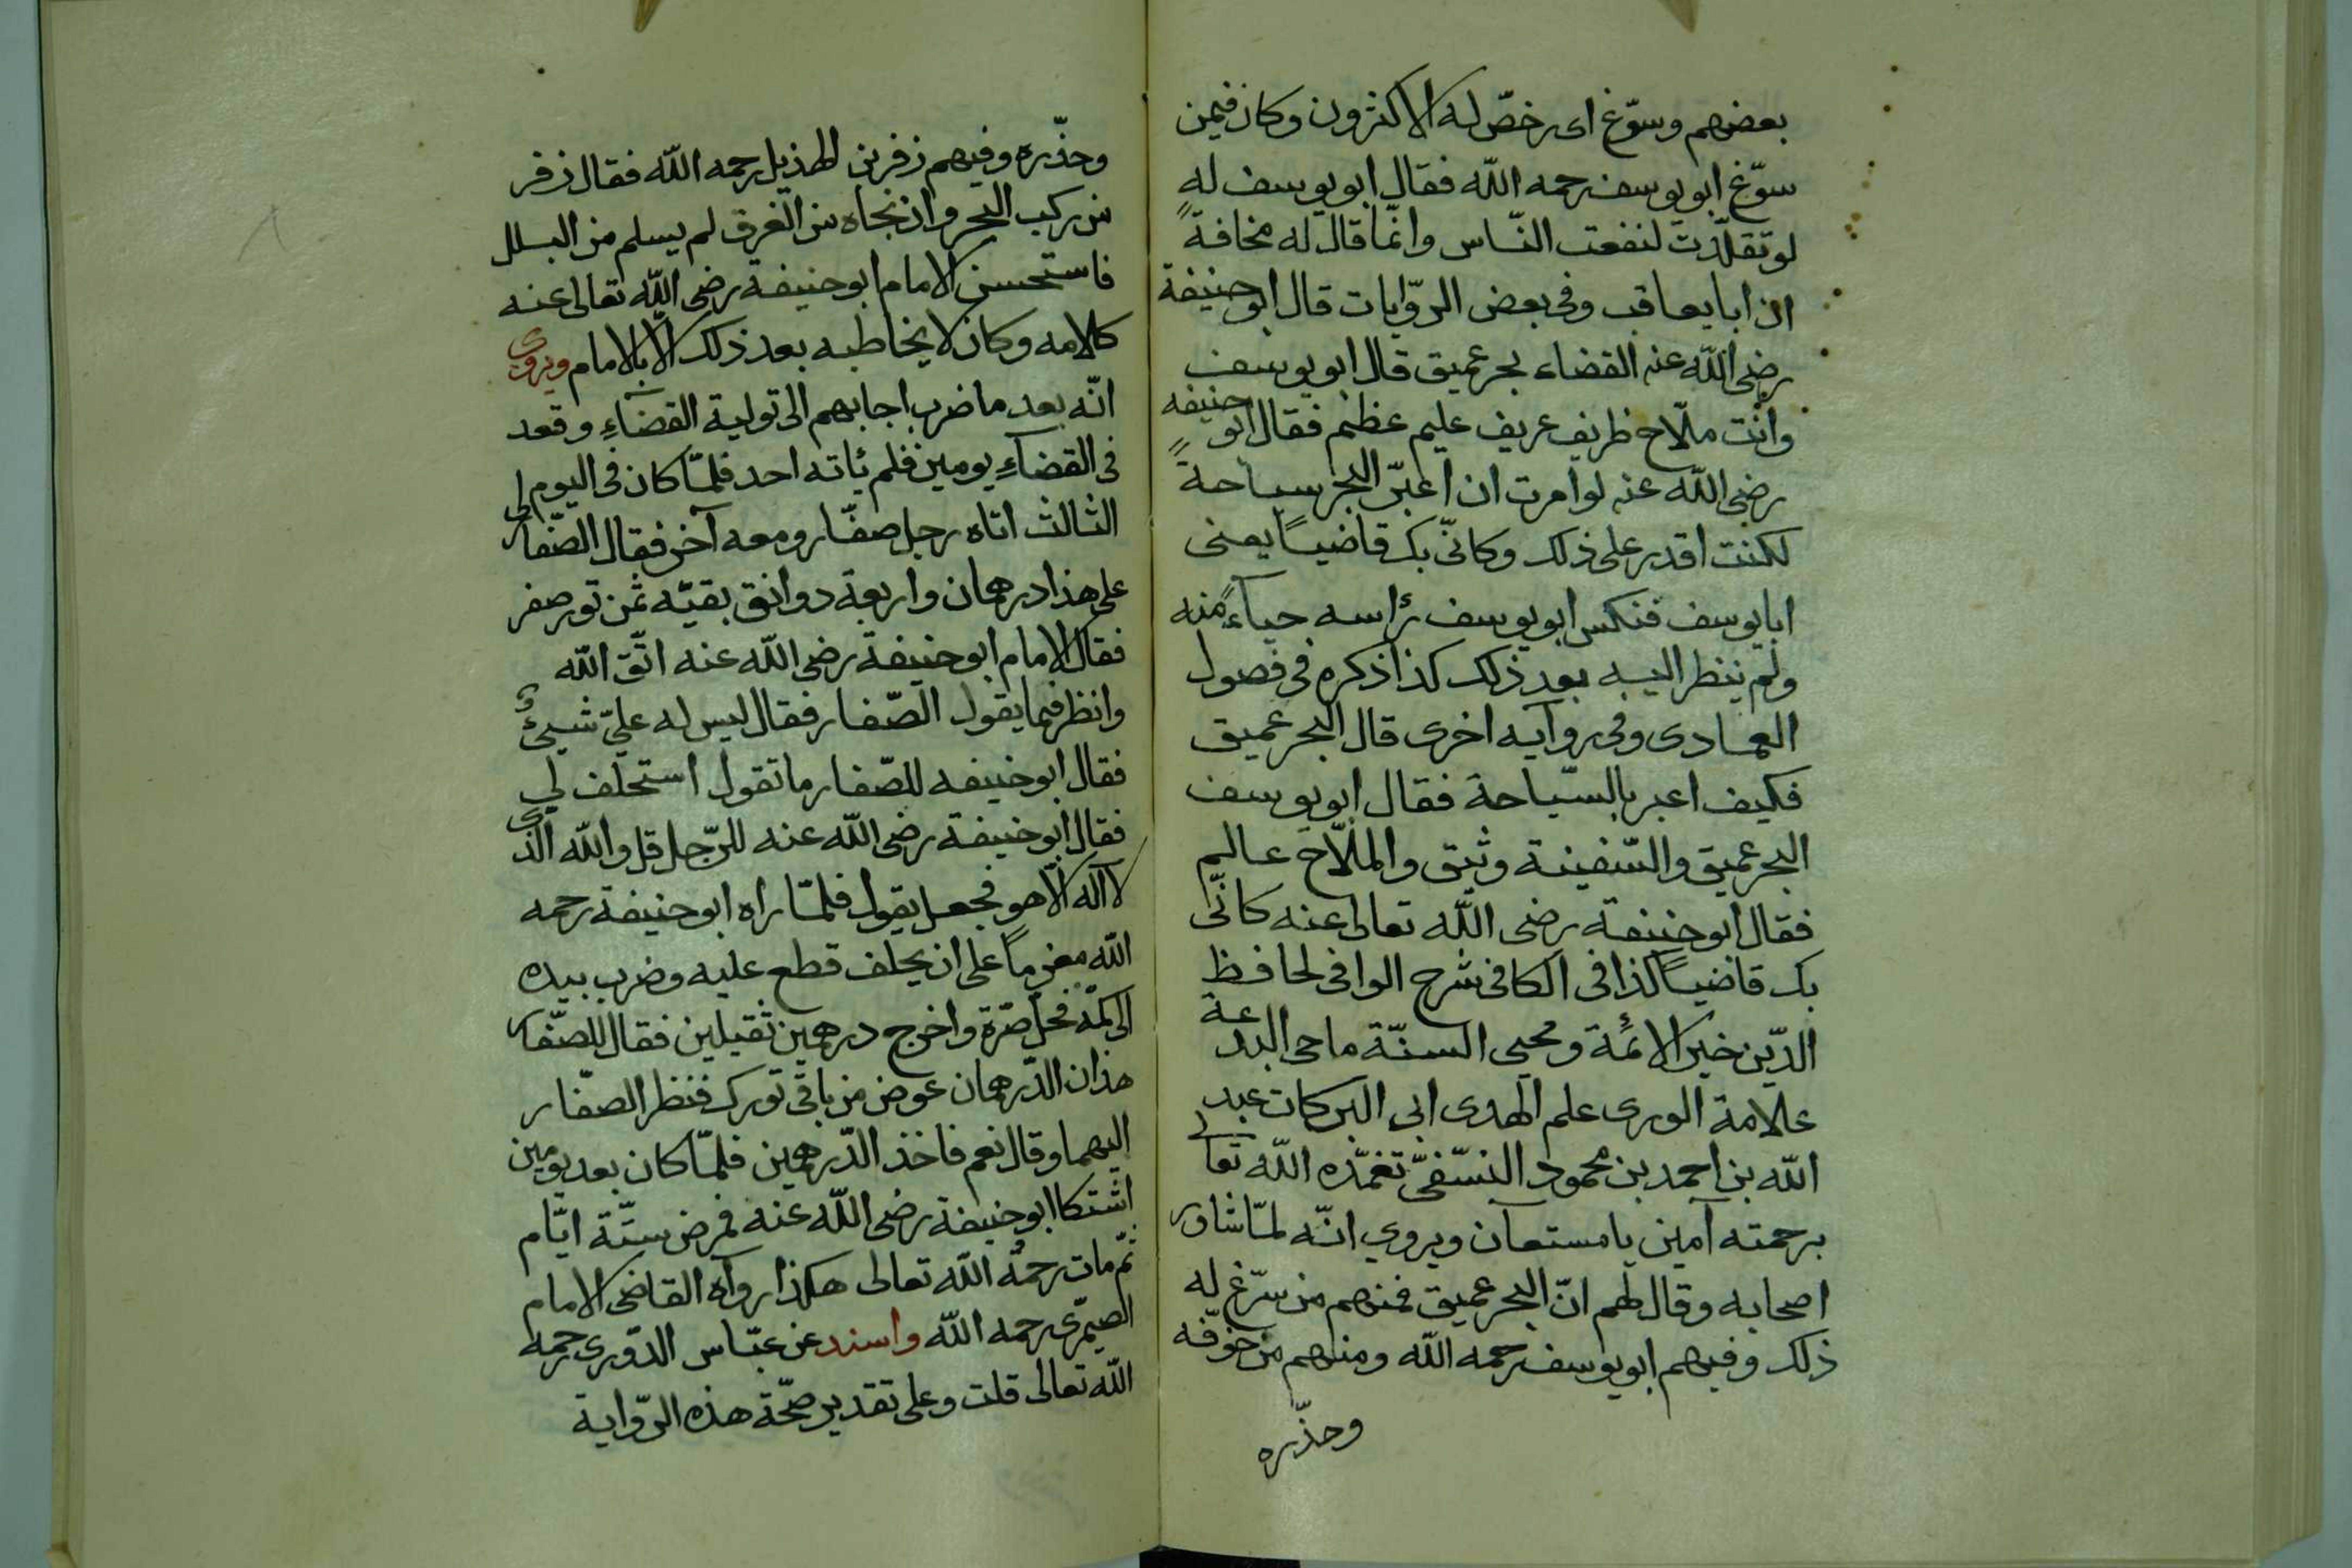 بعضهم وسوّغ اى رخصّ له الاكثرون وكان فيمن
سوّغ ابو يوسف رحمه الله فقال ابو يوسف له
لو تقلّدت لنفعت النّاس وانّما قال له مخافةً
ان ابا يعاقب وفى بعض الروّايات قال ابو حنيفة
رضى الله عنه القضاء بحر عميق قال ابو يوسف
وانت ملّاح ظريف عريف عليم عظيم فقال ابو حنيفه
رضى الله عنه لو امرت ان اعبّر البحر سباحةً
لكنت اقدر على ذلك وكانّى بك قاضيًا يعنى
ابا يوسف فنكس ابو يوسف رأسه حياءً منه
ولم ينظر اليه بعد ذلك كذا ذكره فى فصول
العمادى وفى روآيه اخرى قال البحر عميق
فكيف اعبر بالسّباحة فقال ابو يوسف
البحر عميق والسّفينة وثيق والملّاح عالم
فقال ابو حنيفة رضى الله تعالى عنه كانّى
بك قاضيًا كذا فى الكافى شرح الوافى لحافظ
الدّين خير الائمة ومحيى السنّة ماحى البدعة
علامة الورى علم الهدى ابى البركات عبد
الله بن احمد بن محمود النسّفىّ تغمّده الله تعا
برحمته آمين يا مستعآن ويروي انّه لمّا شاور
اصحابه وقال لهم انّ البحر عميق فمنهم من سرّغ له
ذلك وفيهم ابو يوسف رحمه الله ومنهم من خوّفه
وحذّره
وحذّره وفيهم زفر بن الهذيل رحمه الله فقال زفر
من ركب البحر وان نجاه من الغرق لم يسلم من البلل
فاستحسن الامام ابو حنيفة رضى الله تعالى عنه
كلامه وكان لا يخاطبه بعد ذلك الّا بالامام ويروى
انّه بعد ما ضرب اجابهم الى تولية القضآءِ وقعد
فى القضآءِ يومين فلم يأته احد فلمّا كان فى اليوم
الثالث اتاه رجل صفّار ومعه آخر فقال الصّفار لى
على هذا درهمان واربعة دوانق بقيّه ثمن تور صفر
فقال الامام ابو حنيفة رضى الله عنه اتّق الله
وانظر فيما يقول الصّفار فقال ليس له عليّ شيئٌ
فقال ابو حنيفه للصّفار ما تقول استحلف لي
فقال ابو حنيفة رضى الله عنه للرّجل قل والله الذى
لا آله الّا هو فجعل يقول فلمّا راه ابو حنيفة رحمه
الله مغرمًا على ان يحلف قطع عليه وضرب بيده
الى كمّه فحلّ صّرة واخرج درهمين ثقيلين فقال للصّفار
هذان الدّرهمان عوض من باقى تورك فنظر الصفّار
اليهما وقال نعم فاخذ الدّرهمين فلمّا كان بعد يومين
اشتكا ابو حنيفة رضى الله عنه فمرض ستّة ايّام
ثمّ مات رحمه الله تعالى هكذا روآه القاضى الامام
الصيمّرى رحمه الله واسند عن عبّاس الدّورى رحمه
الله تعالى قلت وعلى تقدير صحّة هذه الروّاية